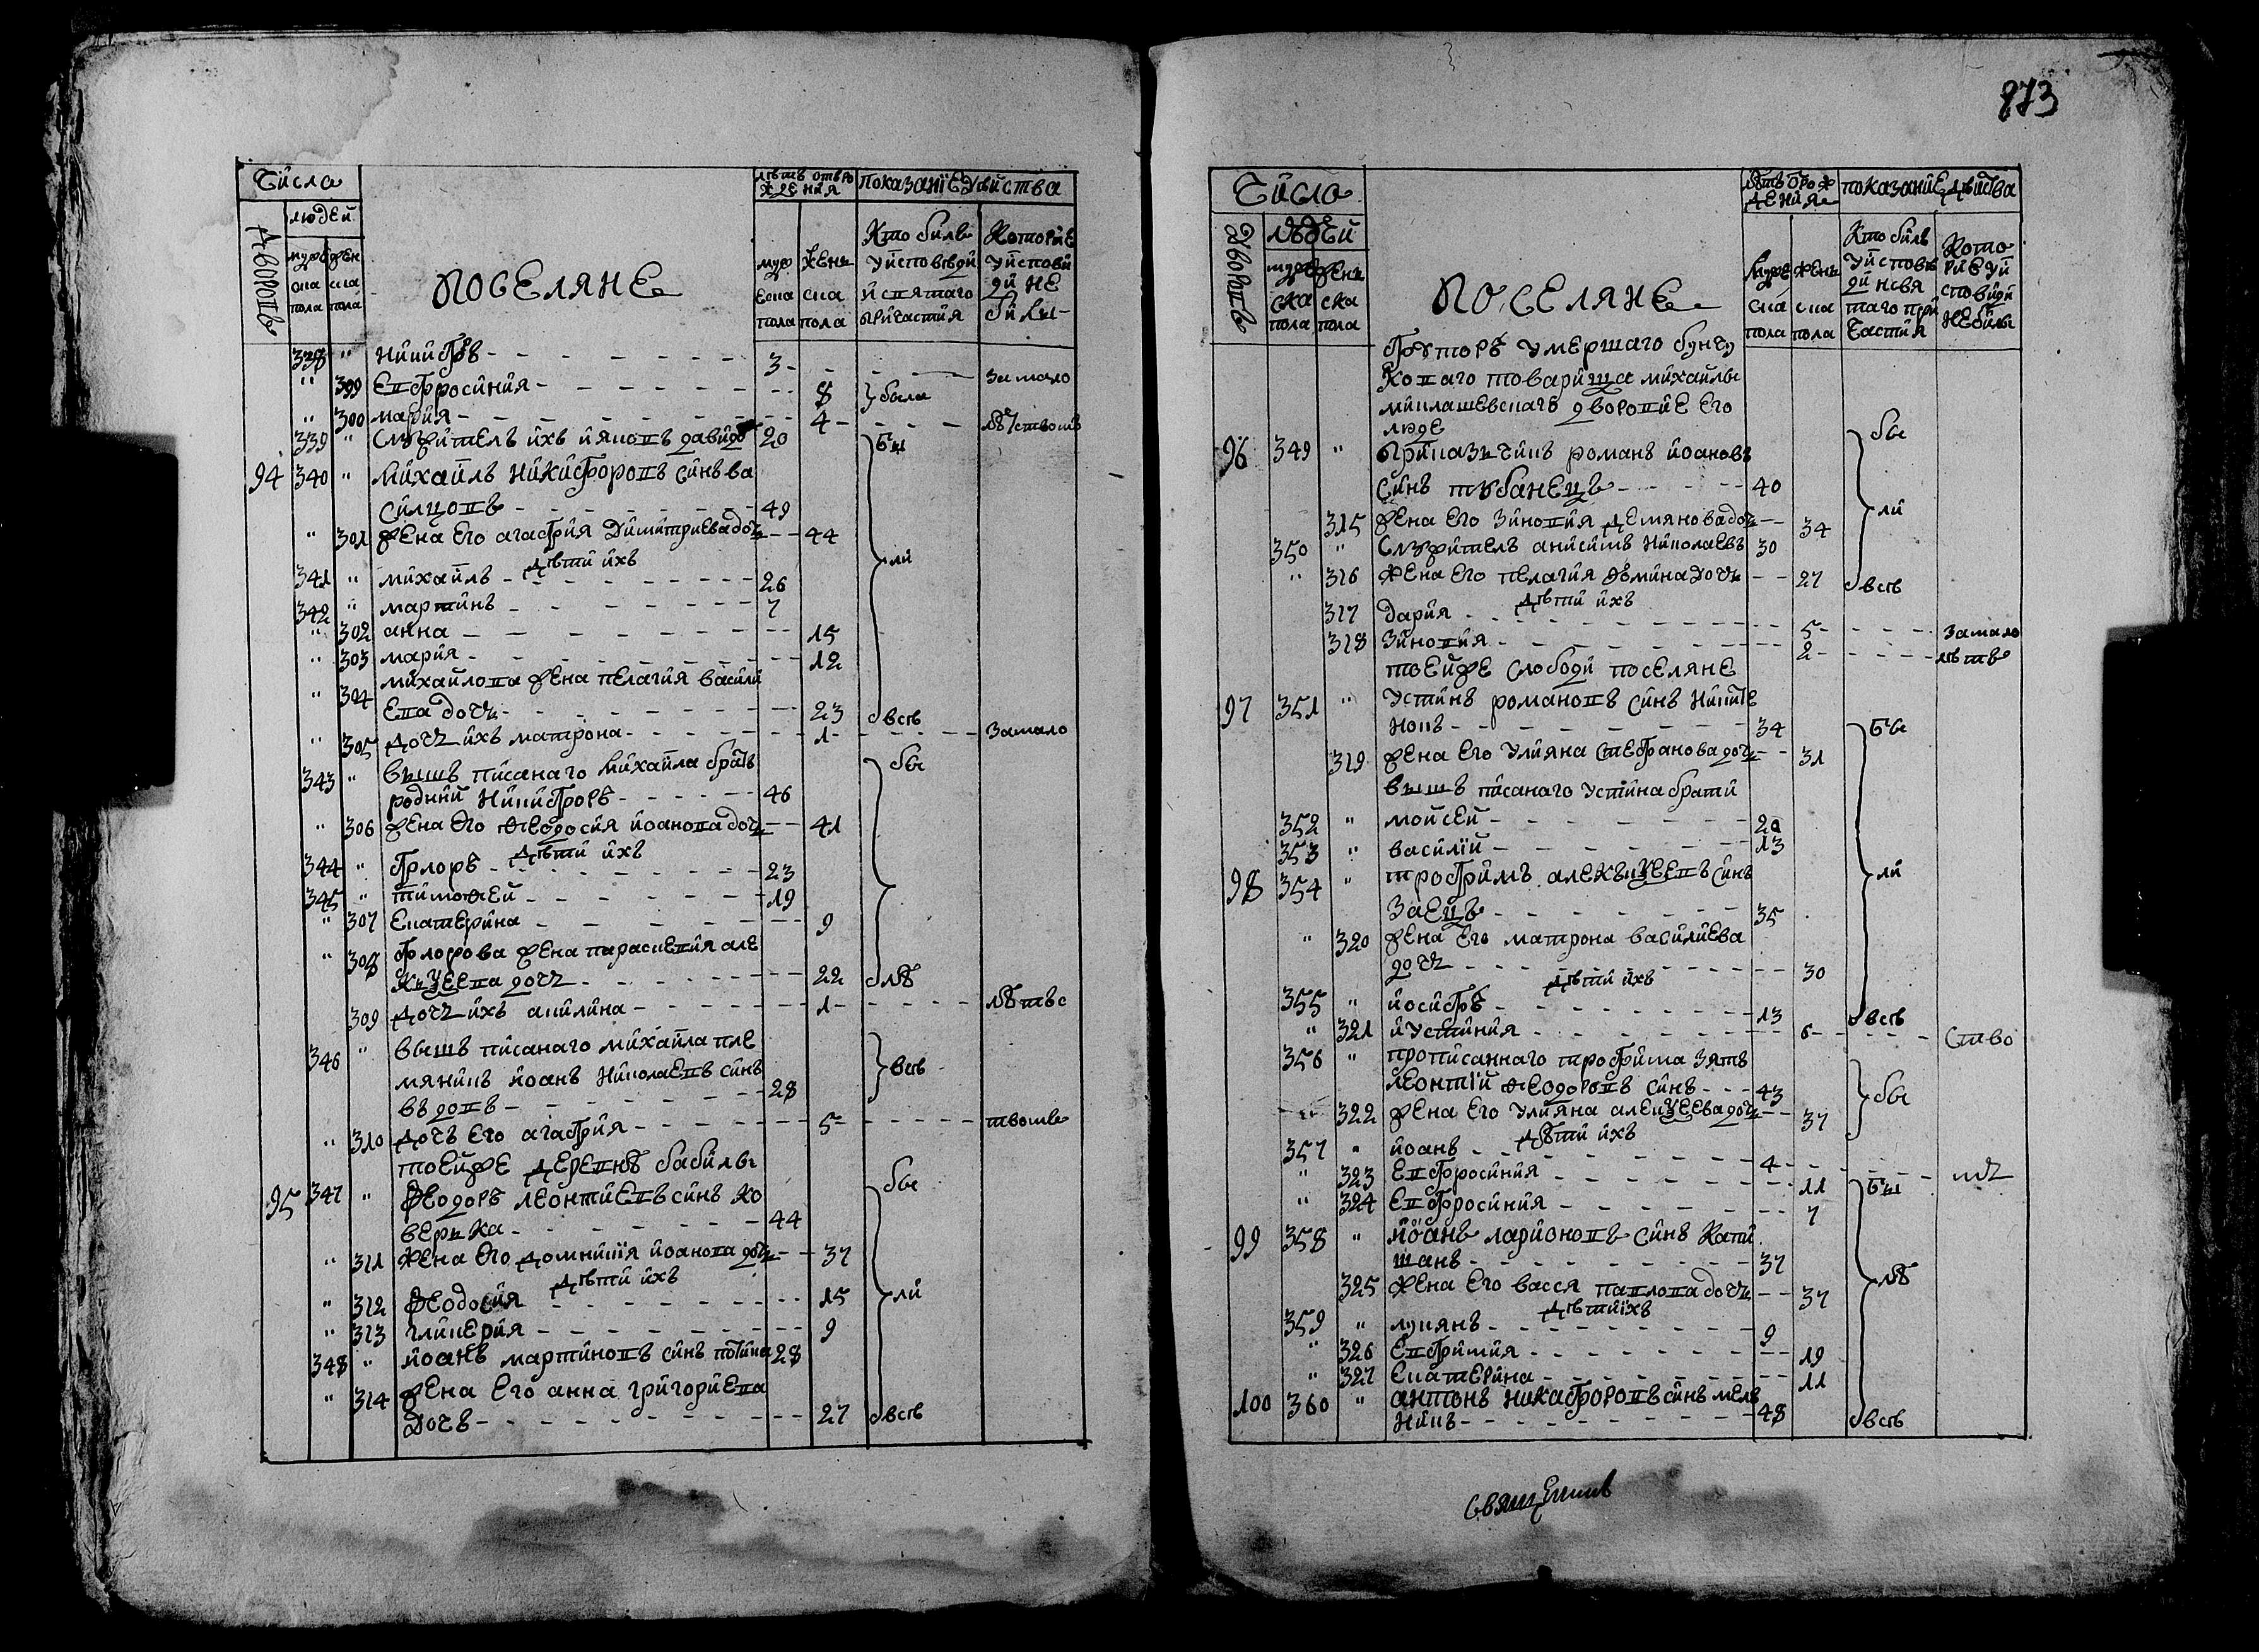 873
Числа
людей
дворовъ
мужеска пола
женска пола
ПОСЕЛЯНЕ
лѣтъ отъ рождения
мужеска пола
женска пола
показание дѣйства
Кто былъ у исповѣди и святаго причастия
Которие у исповѣди не были
338 " Никифоръ - 3 -
" 399 Евфросиния - 8 была за мало
" 300 мария - 4 - лѣтствомъ
339 " Служитель ихъ ияковъ давидо 20 бы
94 340 " Михаилъ Никифоровъ синъ ва
силцовъ - 49
" 301 жена его агафия Димитриева дочь - 44
дѣти ихъ
341 " михаилъ - 26 ли
342 " мартинъ - 7
" 302 анна - 15
" 303 мария - 12
" 304 михайлова жена пелагия васили
ева дочь - 23 всѣ
" 305 дочь ихъ матрона - 1 - за мало
343 " вышъ писанаго михаила братъ бы
родний Никифоръ - 46
" 306 жена его феодосия иоанова дочь - 41
дѣти ихъ
344 " флоръ - 23
345 " тимофей - 19
" 307 Екатерина - 9
" 308 флорова жена параскевия але
кѣева дочь - 22 лѣ
309 дочь ихъ акилина - 1 - лѣтвс
346 " вышъ писанаго михаила пле
мяникъ иоанъ Николаевъ синъ всѣ
вдовъ - 28
" 310 дочъ его агафия - 5 - твомъ
тоейже деревнѣ бабиль
95 347 " феодоръ леонтиевъ синъ ко бы
верька - 44
" 311 жена его домникия иоанова дочь - 37
дѣти ихъ
" 312 феодосия - 15 ли
" 313 гликерия - 9
348 " иоанъ мартиновъ синъ 28
" 314 жена его анна григориева
дочъ - 27 всѣ
Числа
людей
дворовъ
мужеска пола
женска пола
ПОСЕЛЯНЕ
лѣтъ от рождения
мужеска пола
женска пола
показание дѣйства
Кто билъ у исповѣди и святаго причастия
Которие у исповиди не били
футоръ умершаго бунчу
коваго товарища михайлы
миклашевскаго дворовие его
люде
96 349 " приказьчикъ романъ иоановъ бы
синъ кубанецъ - 40
315 жена его Зиновия демянова дочь - 34 ли
350 " служитель анисимъ Николаевъ 30
" 316 жена его пелагия фомина дочь - 27 всѣ
дѣти ихъ
317 дария - 5 - за мало
318 Зиновия - 2 - лѣтв
тоейже слободи поселяне
97 351 " Устинъ романовъ синъ
новъ - 34 бы
319 жена его улияна стефанова дочь - 31
вышъ писанаго устина брати
352 " мойсей - 20
353 " василий - 13
98 354 " трофимъ алекьѣевъ синъ ли
Заецъ - 35
" 320 жена его матрона василиева
дочь - 30
дѣти ихъ
355 " иосифъ - 13 всѣ
" 321 иустиния - 6 - ство
356 " прописаннаго трофима зять
леонтий феодоровъ синъ - 43 бы
" 322 жена его улияна алекѣева дочь - 37
дѣти ихъ
357 " иоанъ - 4 - мъ
" 323 Евфросиния - 11 бы
" 324 Евфросиния - 7
99 358 " иоанъ ларионовъ синъ капи
танъ - 37
325 жена его васся павлова дочь - 37 лѣ
дѣти ихъ
359 " лукянъ - 9
" 326 Евфимия - 19
" 327 Екатерина - 11
100 360 " антонъ никафоровъ синъ мель
никъ - 48 всѣ
священникъ